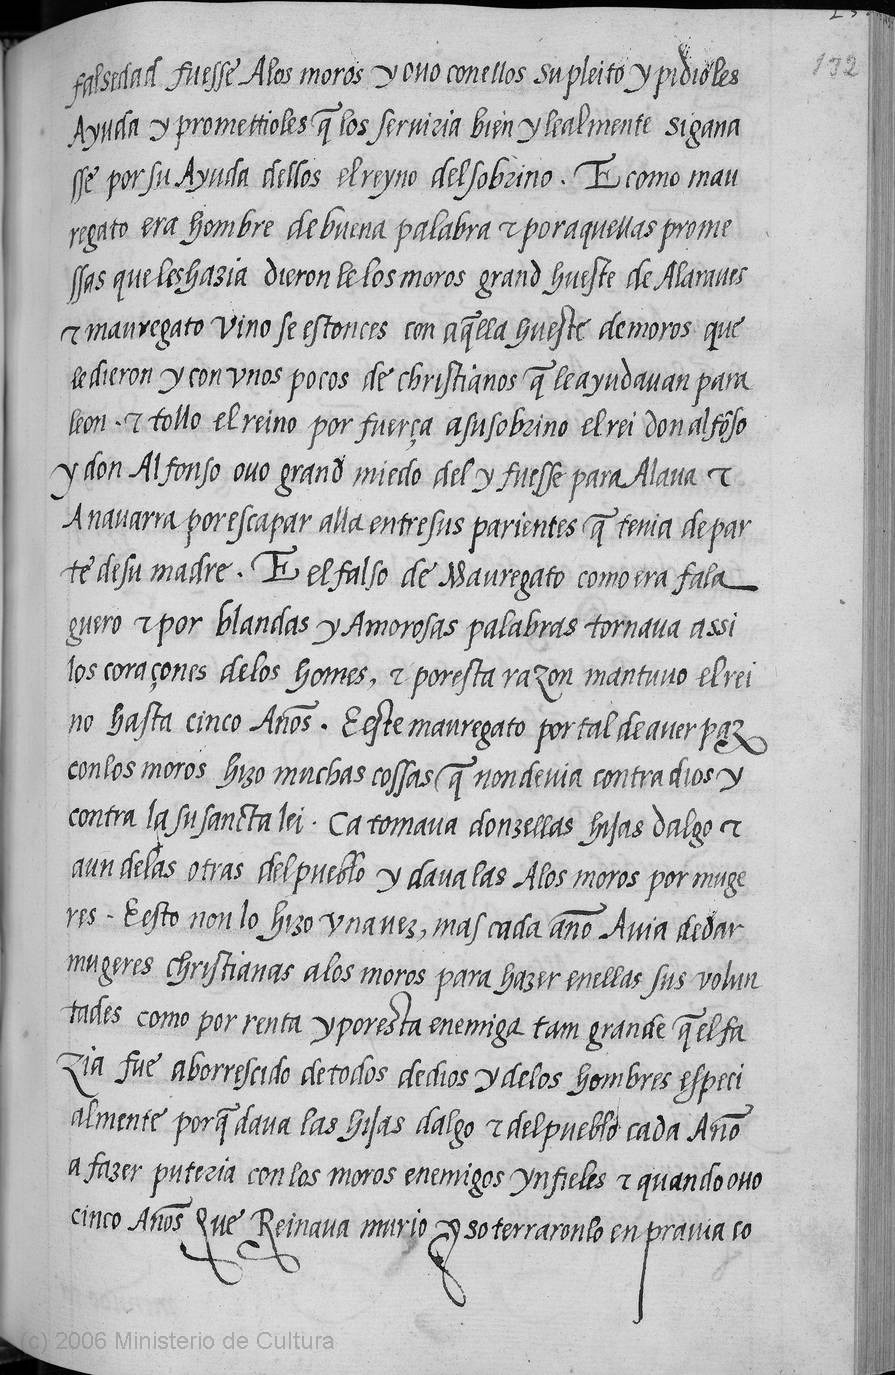 132
falsedad fuesse Alos moros y ovo conellos su pleito y pidioles
Ayuda y promettioles q̃ los serviria bien y lealmente si gana
sse por su Ayuda dellos el reyno del sobrino. E como mau
regato era hombre de buena palabra τ por aquellas prome
ssas que les hazia dieron le los moros grand hueste de Alaraves
τ mauregato Vino se estonces con aq̃lla hueste de moros que
le dieron y con vnos pocos de christianos q̃ le ayudavan para
leon. τ tollo el reino por fuerça a su sobrino el rei don alfõso
y don Alfonso ovo grand miedo del y fuesse para Alava τ
A navarra por escapar alla entre sus parientes q̃ tenia de par
te de su madre. E el falso de Mauregato como era fala
guero τ por blandas y Amorosas palabras tornava assi
los coraçones de los homes, τ por esta razon mantuvo el rei
no hasta cinco Años. E este mauregato por tal de aver paz
con los moros hizo muchas cossas q̃ non devia contra dios y
contra la su sancta lei. Ca tomava donzellas hijas dalgo τ
aun de las otras del pueblo y dava las Alos moros por muge
res. E esto non lo hizo vna vez, mas cada año Avia de dar
mugeres christianas a los moros para hazer en ellas sus volun
tades como por renta y por esta enemiga tam grande q̃ el fa
zia fue aborrescido de todos de dios y de los hombres especi
almente porq̃ dava las hijas dalgo τ del pueblo cada Año
a fazer puteria con los moros enemigos ynfieles τ quando ovo
cinco Años Que Reinava murio y soterraronlo en pravia co
(c) 2006 Ministerio de Cultura